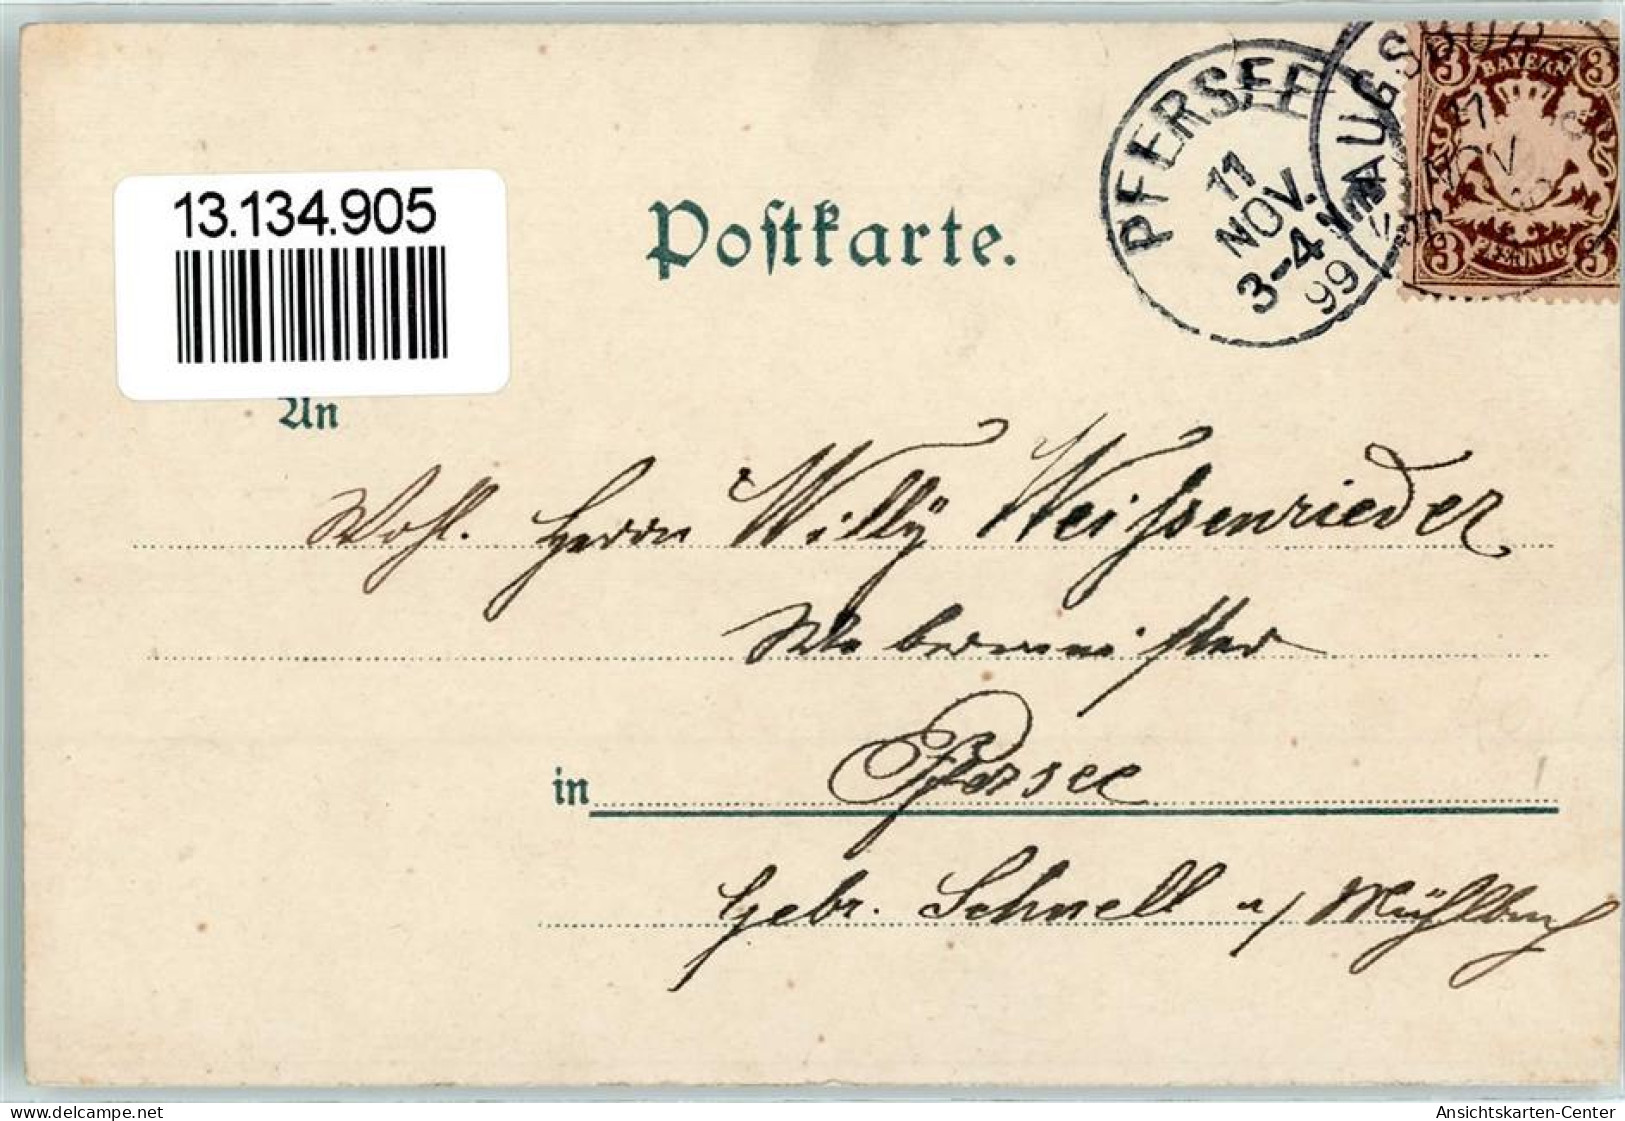 13.134.905
Postkarte.
PFERSEE
11
NOV.
3-4 Nm
99
AUGSBURG
11
NOV
3 BAYERN 3
3 PFENNIG 3
An
Wohl. Herrn Willy Weissenrieder
Webermeister
in Pfersee
Gebr. Schnell
delcampe.net
Ansichtskarten-Center